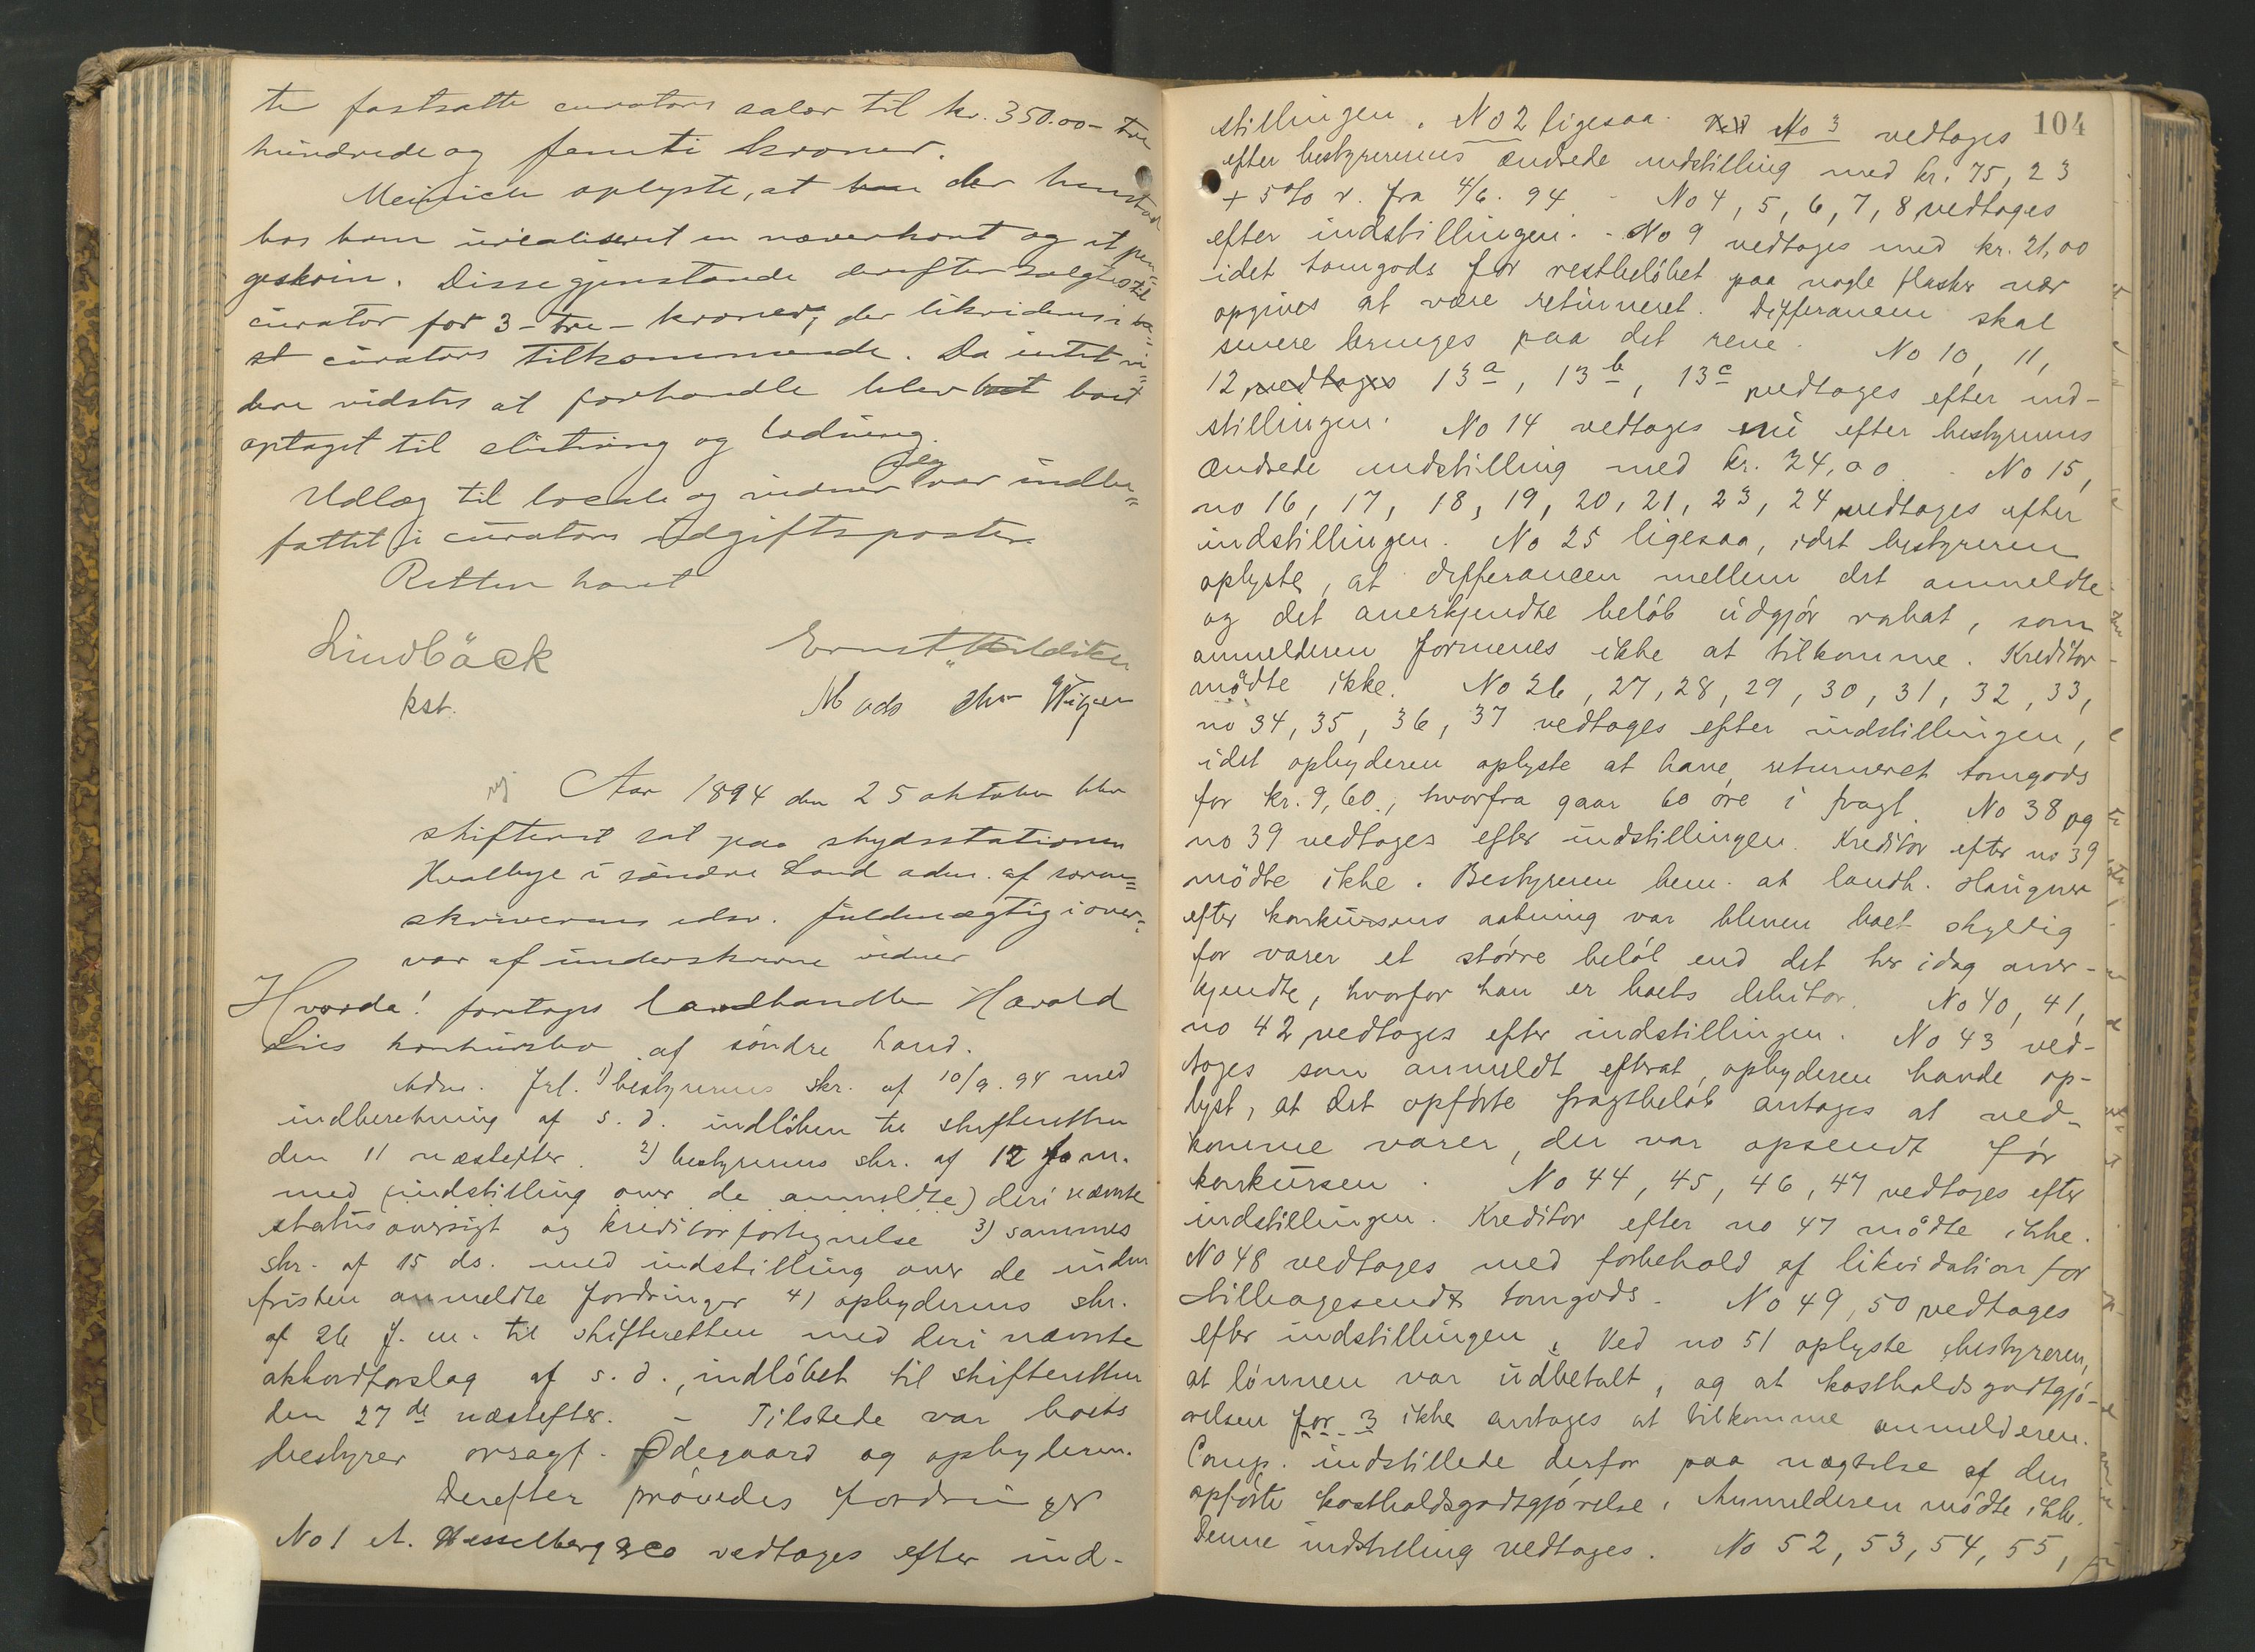 ten fastsatte curators salær til kr. 350.00 – tre
hundrede og femti kroner.
Meinich oplyste, at der henstod
hos ham urealiseret en næverkont og et pen=
geskrin. Disse gjenstande derefter solgtes til
curator for 3 – tre – kroner, der likvideres i
curators tilkommende. Da intet vi=
dere vidstes at forhandle blev boet
optaget til slutning og lodning.
Udlæg til locale og vidner var indbe=
fattet i curators udgiftsposter.
Retten hævet
Lindbäck
kst.
Ernst
Mads
Aar 1894 den 25 oktober blev
skifteret sat paa skydsstationen
Hvalbye i søndre Land adm. af soren=
skriverens edsv. fuldmægtig i over=
vær af underskrevne vidner
Hvorda! foretages landhandler Harald
Lies konkursbo af søndre Land.
Adm. frl. 1) bestyrerens skr. af 10/9. 94 med
indberetning af s. d. indløben til skifteretten
den 11 næstefter. 2) bestyrerens skr. af 12 f. m.
med (indstilling over de anmeldte) deri nævnte
statusoversigt og kreditorfortegnelse 3) sammes
skr. af 15 ds. med indstilling over de inden
fristen anmeldte fordringer 4) opbyderens skr.
af 26 f. m. til skifteretten med deri nævnte
akkordforslag af s. d., indløbet til skifteretten
den 27de næstefter. – Tilstede var boets
bestyrer orsagf. Ødegaard og opbyderen.
Derefter prøvedes fordringer
No 1 A. Hesselberg & co vedtages efter ind-
104
stillingen. No 2 ligesaa. No 3 vedtages
efter bestyrerens ændrede indstilling med kr. 75,23
+ 5% r. fra 4/6. 94. – No 4, 5, 6, 7, 8 vedtages
efter indstillingen. – No 9 vedtages med kr. 21,00
idet tomgods for restbeløbet paa nogle flasker nær
opgives at være returneret. Differansen skal
senere bringes paa det rene. No 10, 11,
12 vedtages 13a, 13b, 13c vedtages efter ind-
stillingen. No 14 vedtages efter bestyrerens
ændrede indstilling med kr. 24,00 – No 15,
no 16, 17, 18, 19, 20, 21, 23, 24 vedtages efter
indstillingen. No 25 ligesaa, idet bestyreren
oplyste, at differansen mellem det anmeldte
og det anerkjendte beløb udgjør rabat, som
anmelderen formenes ikke at tilkomme. Kreditor
mødte ikke. No 26, 27, 28, 29, 30, 31, 32, 33,
no 34, 35, 36, 37 vedtages efter indstillingen,
idet opbyderen oplyste at have returneret tomgods
for kr. 9,60, hvorfra gaar 60 øre i fragt. No 38 og
no 39 vedtages efter indstillingen. Kreditor efter no 39
mødte ikke. Bestyreren bem. at landh. Haugner
efter konkursens aabning var bleven boet skyldig
for varer et større beløb end det her idag aner-
kjendte, hvorfor han er boets debitor. No 40, 41,
no 42 vedtages efter indstillingen. No 43 ved-
tages som anmeldt efterat opbyderen havde op-
lyst, at det opførte fragtbeløb antages at ved-
komme varer, der var opsendt før
konkursen. No 44, 45, 46, 47 vedtages efter
indstillingen. Kreditor efter no 47 mødte ikke.
No 48 vedtages med forbehold af likvidation for
tilbagesendt tomgods. No 49, 50 vedtages
efter indstillingen. Ved no 51 oplyste bestyreren,
at lønnen var udbetalt, og at kostholdsgodtgjø-
relsen for 3 ikke antages at tilkomme anmelderen.
Comp. indstillede derfor paa nægtelse af den
opførte kostholdsgodtgjørelse. Anmelderen mødte ikke.
Denne indstilling vedtages. No 52, 53, 54, 55,